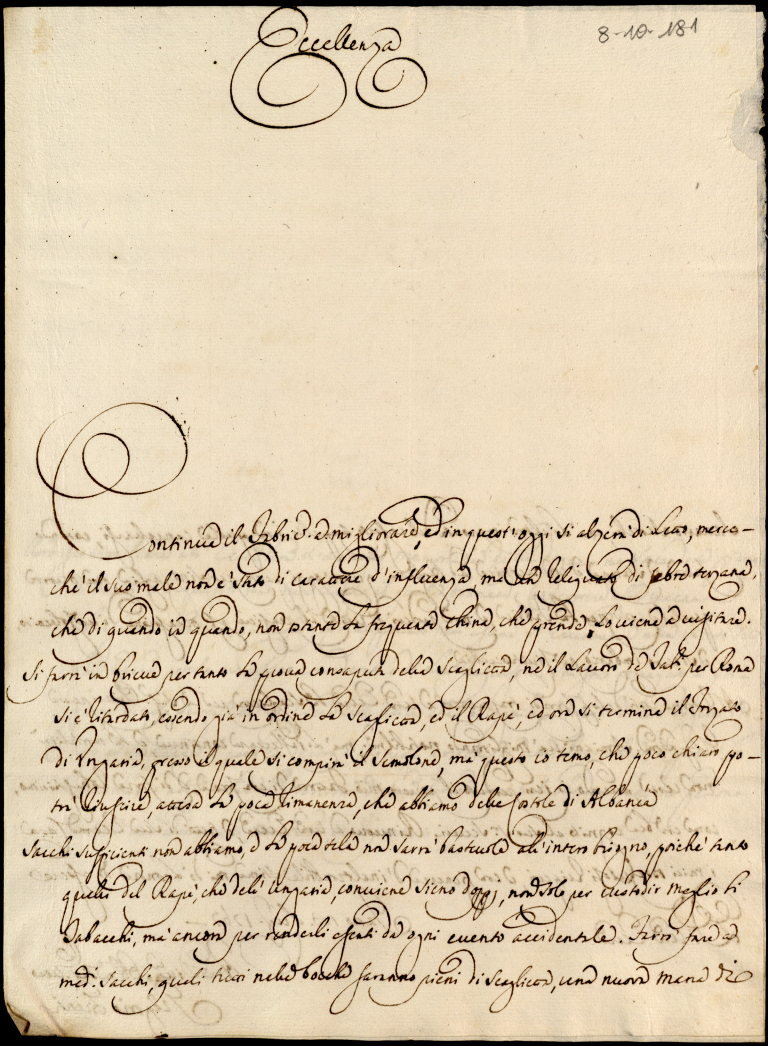 Eccellenza
8-10-181
Continua il Fabric.e a migliorare, ed in quest'oggi si alzerà di Letto, merce-
chè il suo male non è stato di carattere d'influenza, ma un reliquato di febre terzana,
che di quando in quando, non ostante la frequente China, che prende, Lo viene a visitare.
Si farrà in brieve per tanto la prova consaputa della Scaglietta, nè il Lavoro de Tab.i per Roma
si è ritardato, essendo già in ordine la Scaglietta, ed il Rapè, ed ora si termina il
di Ungaria, presso il quale si compirà il Semolone, ma questo io temo, che poco chiaro po-
trà riuscire, attesa la poca rimanenza, che abbiamo delle Costole di Albania
Sacchi sufficienti non abbiamo, e la poca tela non sarrà bastevole all'intero bisogno, poichè tanto
quelli del Rapè, che dell'ungaria, conviene sieno doppj, non solo per custodir meglio li
Tabacchi, ma ancora per renderli esenti da ogni evento accidentale. Farrò fare a
med.i Sacchi, quali nelle bocche saranno pieni di Scaglietta, una nuova mena di